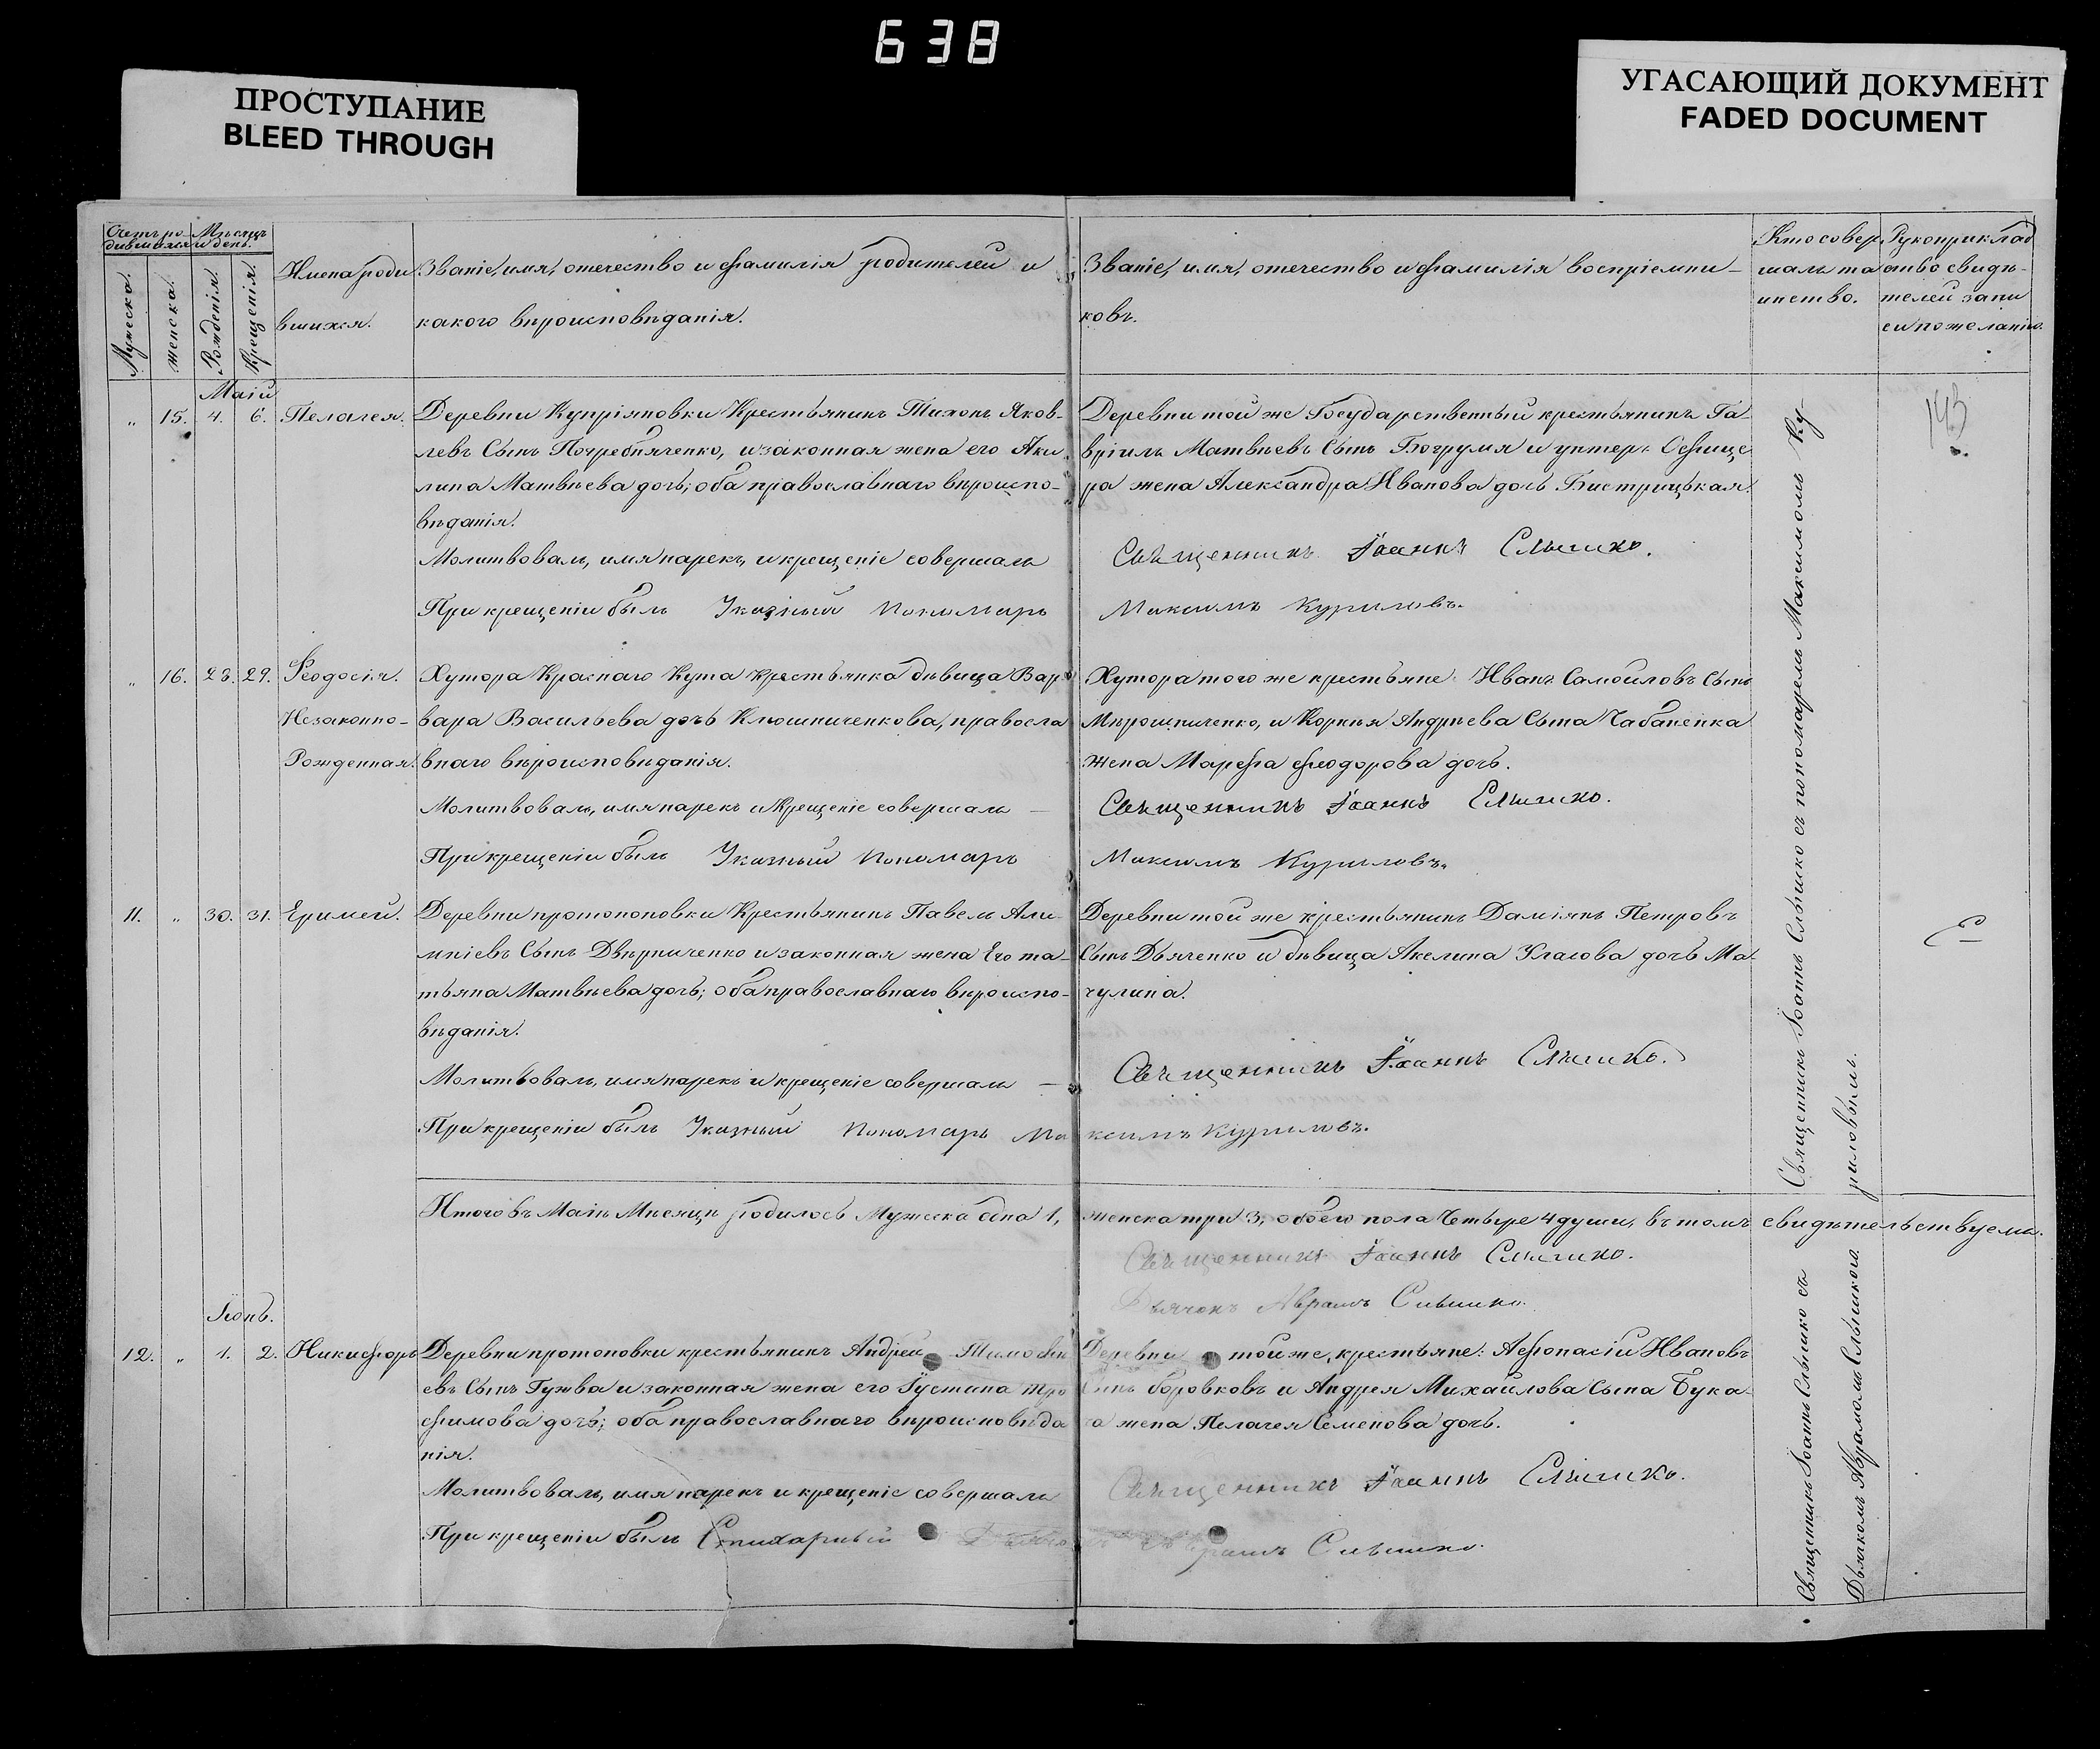 638
ПРОСТУПАНИЕ
BLEED THROUGH
УГАСАЮЩИЙ ДОКУМЕНТ
FADED DOCUMENT
Счетъ ро-
дившихся
Мѣсяцъ
и день.
Мужеска.
женска.
Рожденія.
Крещенія.
Имена роди
вшихся.
Званіе, имя, отечество и фамилія родителей и
какого вѣроисповѣданія.
Званіе, имя, отечество и фамилія воспріемни-
ковъ.
Кто совер
шалъ та
инство.
Рукоприклад
ство свидѣ-
телей запи
си по желанію.
Маій
„ 15. 4. 6. Пелагея.
Деревни Купріяновки Крестьянинъ Тихонъ Яков-
левъ Сынъ Погребняченко, и законная жена его Аки
лина Матвѣева дочь; оба православнаго вѣроиспо-
вѣданія.
Молитвовалъ, имя нарекъ, и крещеніе совершалъ
При крещеніи былъ Указный Пономарь
Деревни той же Государственный крестьянинъ Га-
вріилъ Матвѣевъ Сынъ Богрумя и унтеръ Офице
ра жена Александра Иванова дочь Бистрицькая.
Священникъ Іоаннъ Слышко.
Максимъ Куриловъ.
143
„ 16. 28. 29. Феодосія.
Незаконно-
Рожденная.
Хутора Краснаго Кута крестьянка дѣвица Вар
вара Васильева дочь Клюшниченкова, правосла
внаго вѣроисповѣданія.
Молитвовалъ, имя нарекъ и Крещеніе совершалъ —
При крещеніи былъ Указный Пономарь
Хутора того же крестьяне Иванъ Самойловъ Сынъ
Мѣрошниченко, и Корнѣя Андрѣева Сына Чабаненка
жена Марфа Феодорова дочь.
Священникъ Іоаннъ Слышко.
Максимъ Куриловъ.
11. „ 30. 31. Еримей.
Деревни протопоповки Крестьянинъ Павелъ Али-
мпіевъ Сынъ Двѣрниченко и законная жена Его та-
тьяна Матвѣева дочь; оба православнаго вѣроиспо-
вѣданія.
Молитвовалъ, имя нарекъ и крещеніе совершалъ —
При крещеніи былъ Указный Пономарь Ма
Деревни той же крестьянинъ Даміянъ Петровъ
Сынъ Дьяченко и дѣвица Акелина Уласова дочь Ма-
чулина.
Священникъ Іоаннъ Слышко.
ксимъ Куриловъ.
Священникъ Іоаннъ Слышко съ пономаремъ Максимомъ Ку-
риловымъ.
Итого въ Маіѣ Мѣсяцѣ родилось Мужеска одна 1, женска три 3, обоего пола Четыре 4 души, въ томъ свидѣтельствуемъ.
Священникъ Іоаннъ Слышко.
Дьячокъ Авраамъ Слышко.
Іюнь.
12. „ 1. 2. Никифоръ
Деревни протоповки крестьянинъ Андрей Тимофѣ
евъ Сынъ Гужва и законная жена его Іустина тро
фимова дочь; оба православнаго вѣроисповѣда
нія.
Молитвовалъ, имя нарекъ и крещеніе совершалъ
При крещеніи былъ Стихарный Дьячо
Деревни той же, крестьяне: Афонасій Ивановъ
Сынъ боровковъ и Андрея Михайлова Сына Бука-
жена Пелагея Семенова дочь.
Священникъ Іоаннъ Слышко.
Авраамъ Слышко.
Священникъ Іоаннъ Слышко съ
Дьячкомъ Авраамомъ Слышкомъ.